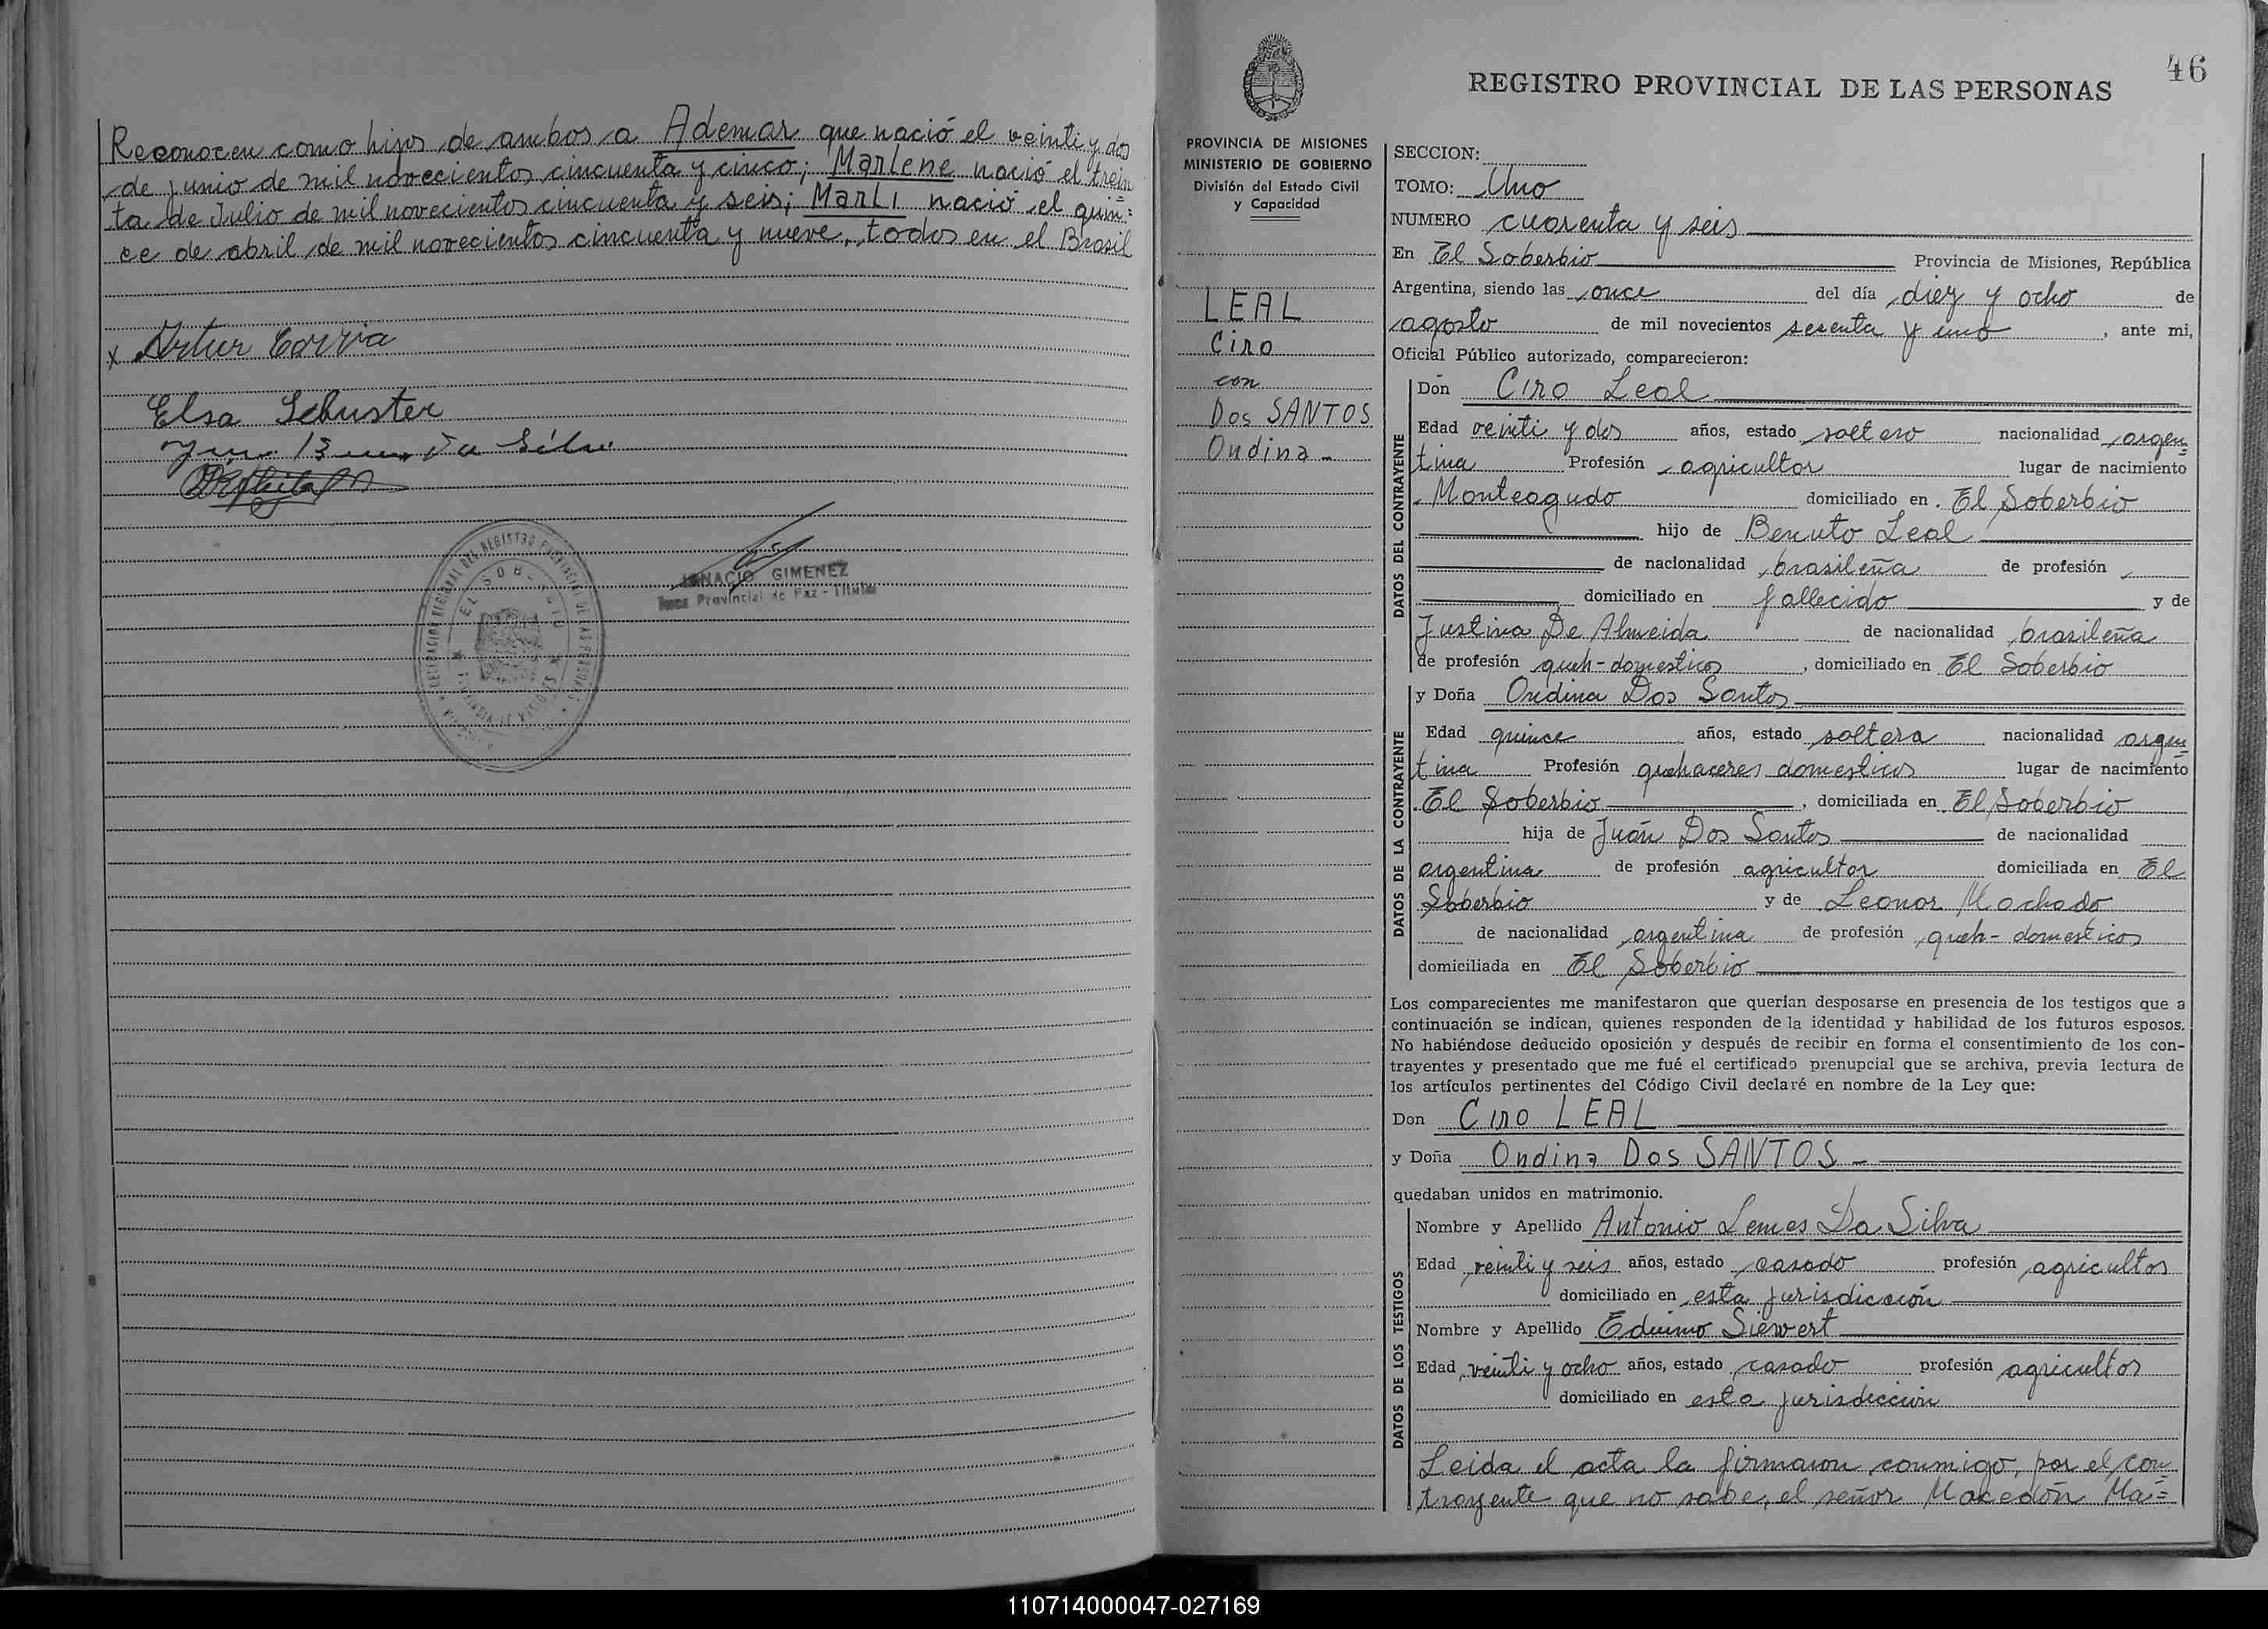 Reconocen como hijos de ambos a Ademar que nació el veinti y dos
de junio de mil novecientos cincuenta y cinco; Marlene nació el trein
ta de Julio de mil novecientos cincuenta y seis; Marli nació el quin=
ce de abril de mil novecientos cincuenta y nueve, todos en el Brasil
x Artur Corria
Elsa Schuster
Da Silva
IGNACIO GIMENEZ
Juez Provincial de Paz - Titular
46
REGISTRO PROVINCIAL DE LAS PERSONAS
PROVINCIA DE MISIONES
MINISTERIO DE GOBIERNO
División del Estado Civil
y Capacidad
LEAL
Ciro
con
Dos SANTOS
Ondina -
SECCION:
TOMO: Uno
NUMERO cuarenta y seis
En El Soberbio Provincia de Misiones, República
Argentina, siendo las once del día diez y ocho de
agosto de mil novecientos sesenta y uno, ante mi,
Oficial Público autorizado, comparecieron:
DATOS DEL CONTRAYENTE
Don Ciro Leal
Edad veinti y dos años, estado soltero nacionalidad argen=
tina Profesión agricultor lugar de nacimiento
Monteagudo domiciliado en El Soberbio
hijo de Benuto Leal
de nacionalidad brasileña de profesión
domiciliado en fallecido y de
Justina De Almeida de nacionalidad brasileña
de profesión queh-domesticos, domiciliado en El Soberbio
DATOS DE LA CONTRAYENTE
y Doña Ondina Dos Santos
Edad quince años, estado soltera nacionalidad argen=
tina Profesión quehaceres domesticos lugar de nacimiento
El Soberbio, domiciliada en El Soberbio
hija de Juán Dos Santos de nacionalidad
argentina de profesión agricultor domiciliada en El
Soberbio y de Leonor Machado
de nacionalidad argentina de profesión queh- domesticos
domiciliada en El Soberbio
Los comparecientes me manifestaron que querían desposarse en presencia de los testigos que a
continuación se indican, quienes responden de la identidad y habilidad de los futuros esposos.
No habiéndose deducido oposición y después de recibir en forma el consentimiento de los con-
trayentes y presentado que me fué el certificado prenupcial que se archiva, previa lectura de
los artículos pertinentes del Código Civil declaré en nombre de la Ley que:
Don Ciro LEAL
y Doña Ondina Dos SANTOS -
quedaban unidos en matrimonio.
DATOS DE LOS TESTIGOS
Nombre y Apellido Antonio Lemes Da Silva
Edad veinti y seis años, estado casado profesión agricultor
domiciliado en esta jurisdicción
Nombre y Apellido Eduino Siewert
Edad veinti y ocho años, estado casado profesión agricultor
domiciliado en esta jurisdicción
Leida el acta la firmaron conmigo, por el con=
trayente que no sabe, el señor Macedón Ma=
110714000047-027169